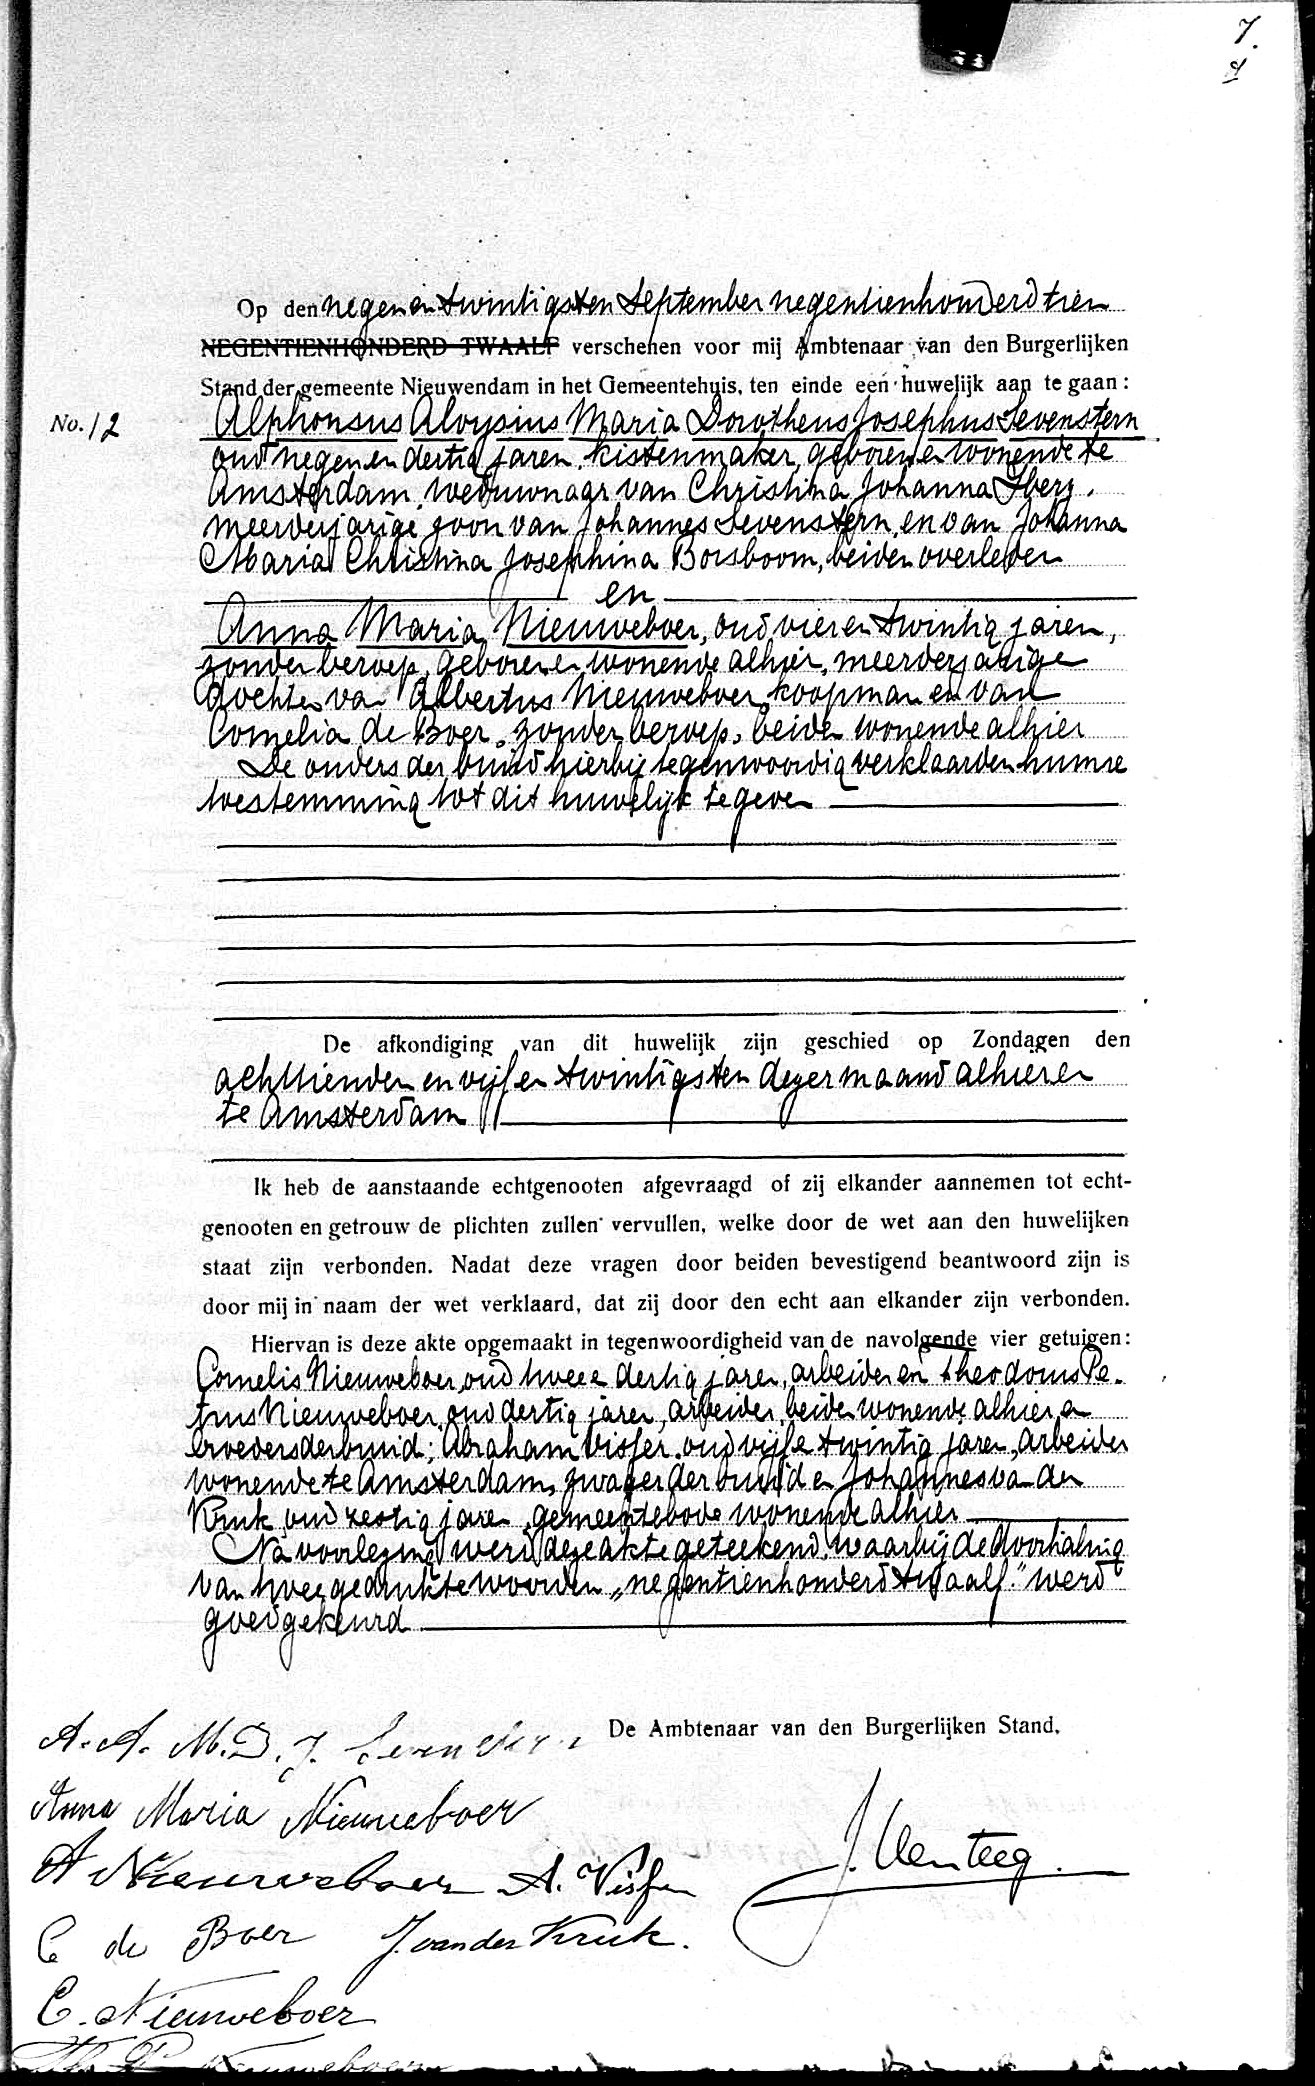 7.
Op den negen en twintigsten September negentienhonderd tien
NEGENTIENHONDERD TWAALF verschenen voor mij Ambtenaar van den Burgerlijken
Stand der gemeente Nieuwendam in het Gemeentehuis, ten einde een huwelijk aan te gaan:
No. 12
Alphonsus Aloysius Maria Dorotheus Josephus Sevenstern
oud negen en dertig jaren, kistenmaker, geboren en wonende te
Amsterdam, weduwnaar van Christina Johanna Iberg,
meerderjarige zoon van Johannes Sevenstern, en van Johanna
Maria Christina Josephina Borsboom, beiden overleden
en
Anna Maria Nieuweboer, oud vier en twintig jaren,
zonder beroep, geboren en wonende alhier, meerderjarige
dochter van Albertus Nieuweboer, koopman en van
Cornelia de Boer, zonder beroep, beiden wonende alhier
De ouders der bruid hierbij tegenwoordig verklaarden hunne
toestemming tot dit huwelijk te geven
De afkondiging van dit huwelijk zijn geschied op Zondagen den
achttienden en vijf en twintigsten dezer maand alhier en
te Amsterdam
Ik heb de aanstaande echtgenooten afgevraagd of zij elkander aannemen tot echt-
genooten en getrouw de plichten zullen vervullen, welke door de wet aan den huwelijken
staat zijn verbonden. Nadat deze vragen door beiden bevestigend beantwoord zijn is
door mij in naam der wet verklaard, dat zij door den echt aan elkander zijn verbonden.
Hiervan is deze akte opgemaakt in tegenwoordigheid van de navolgende vier getuigen:
Cornelis Nieuweboer, oud twee en dertig jaren, arbeider en Theodorus Pe-
trus Nieuweboer, oud dertig jaren, arbeider, beiden wonende alhier en
broeders der bruid; Abraham Visser, oud vijf en twintig jaren, arbeider
wonende te Amsterdam, zwager der bruid en Johannes van der
Kruk, oud zestig jaren, gemeentebode wonende alhier
Na voorlezing werd deze akte geteekend, waarbij de doorhaling
van twee gedrukte woorden "negentienhonderd twaalf." werd
goedgekeurd
De Ambtenaar van den Burgerlijken Stand,
A. A. M. D. J. Sevenstern
Anna Maria Nieuweboer
A Nieuweboer A. Visser
C de Boer J. van der Kruk.
C. Nieuweboer
Th P Nieuweboer